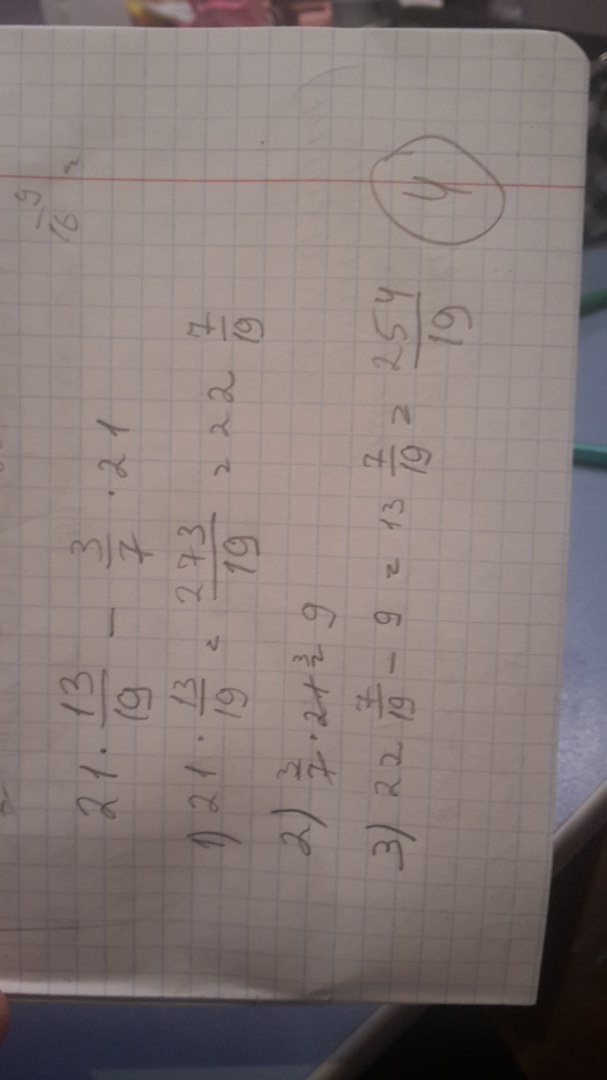 9/16 =
21 · 13/19 − 3/7 · 21
1) 21 · 13/19 = 273/19 = 22 7/19
2) 3/7 · 21 3 = 9
3) 22 7/19 − 9 = 13 7/19 = 254/19
4